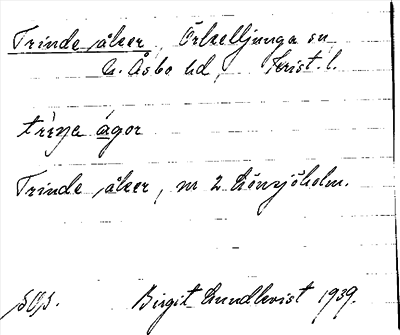 Trinde åker, Örkelljunga sn
N. Åsbo hd, Krist. l.
trìŋe ágor
Trinde åker, nr 2 Lönsjöholm.
Birgit Lundkvist 1939.